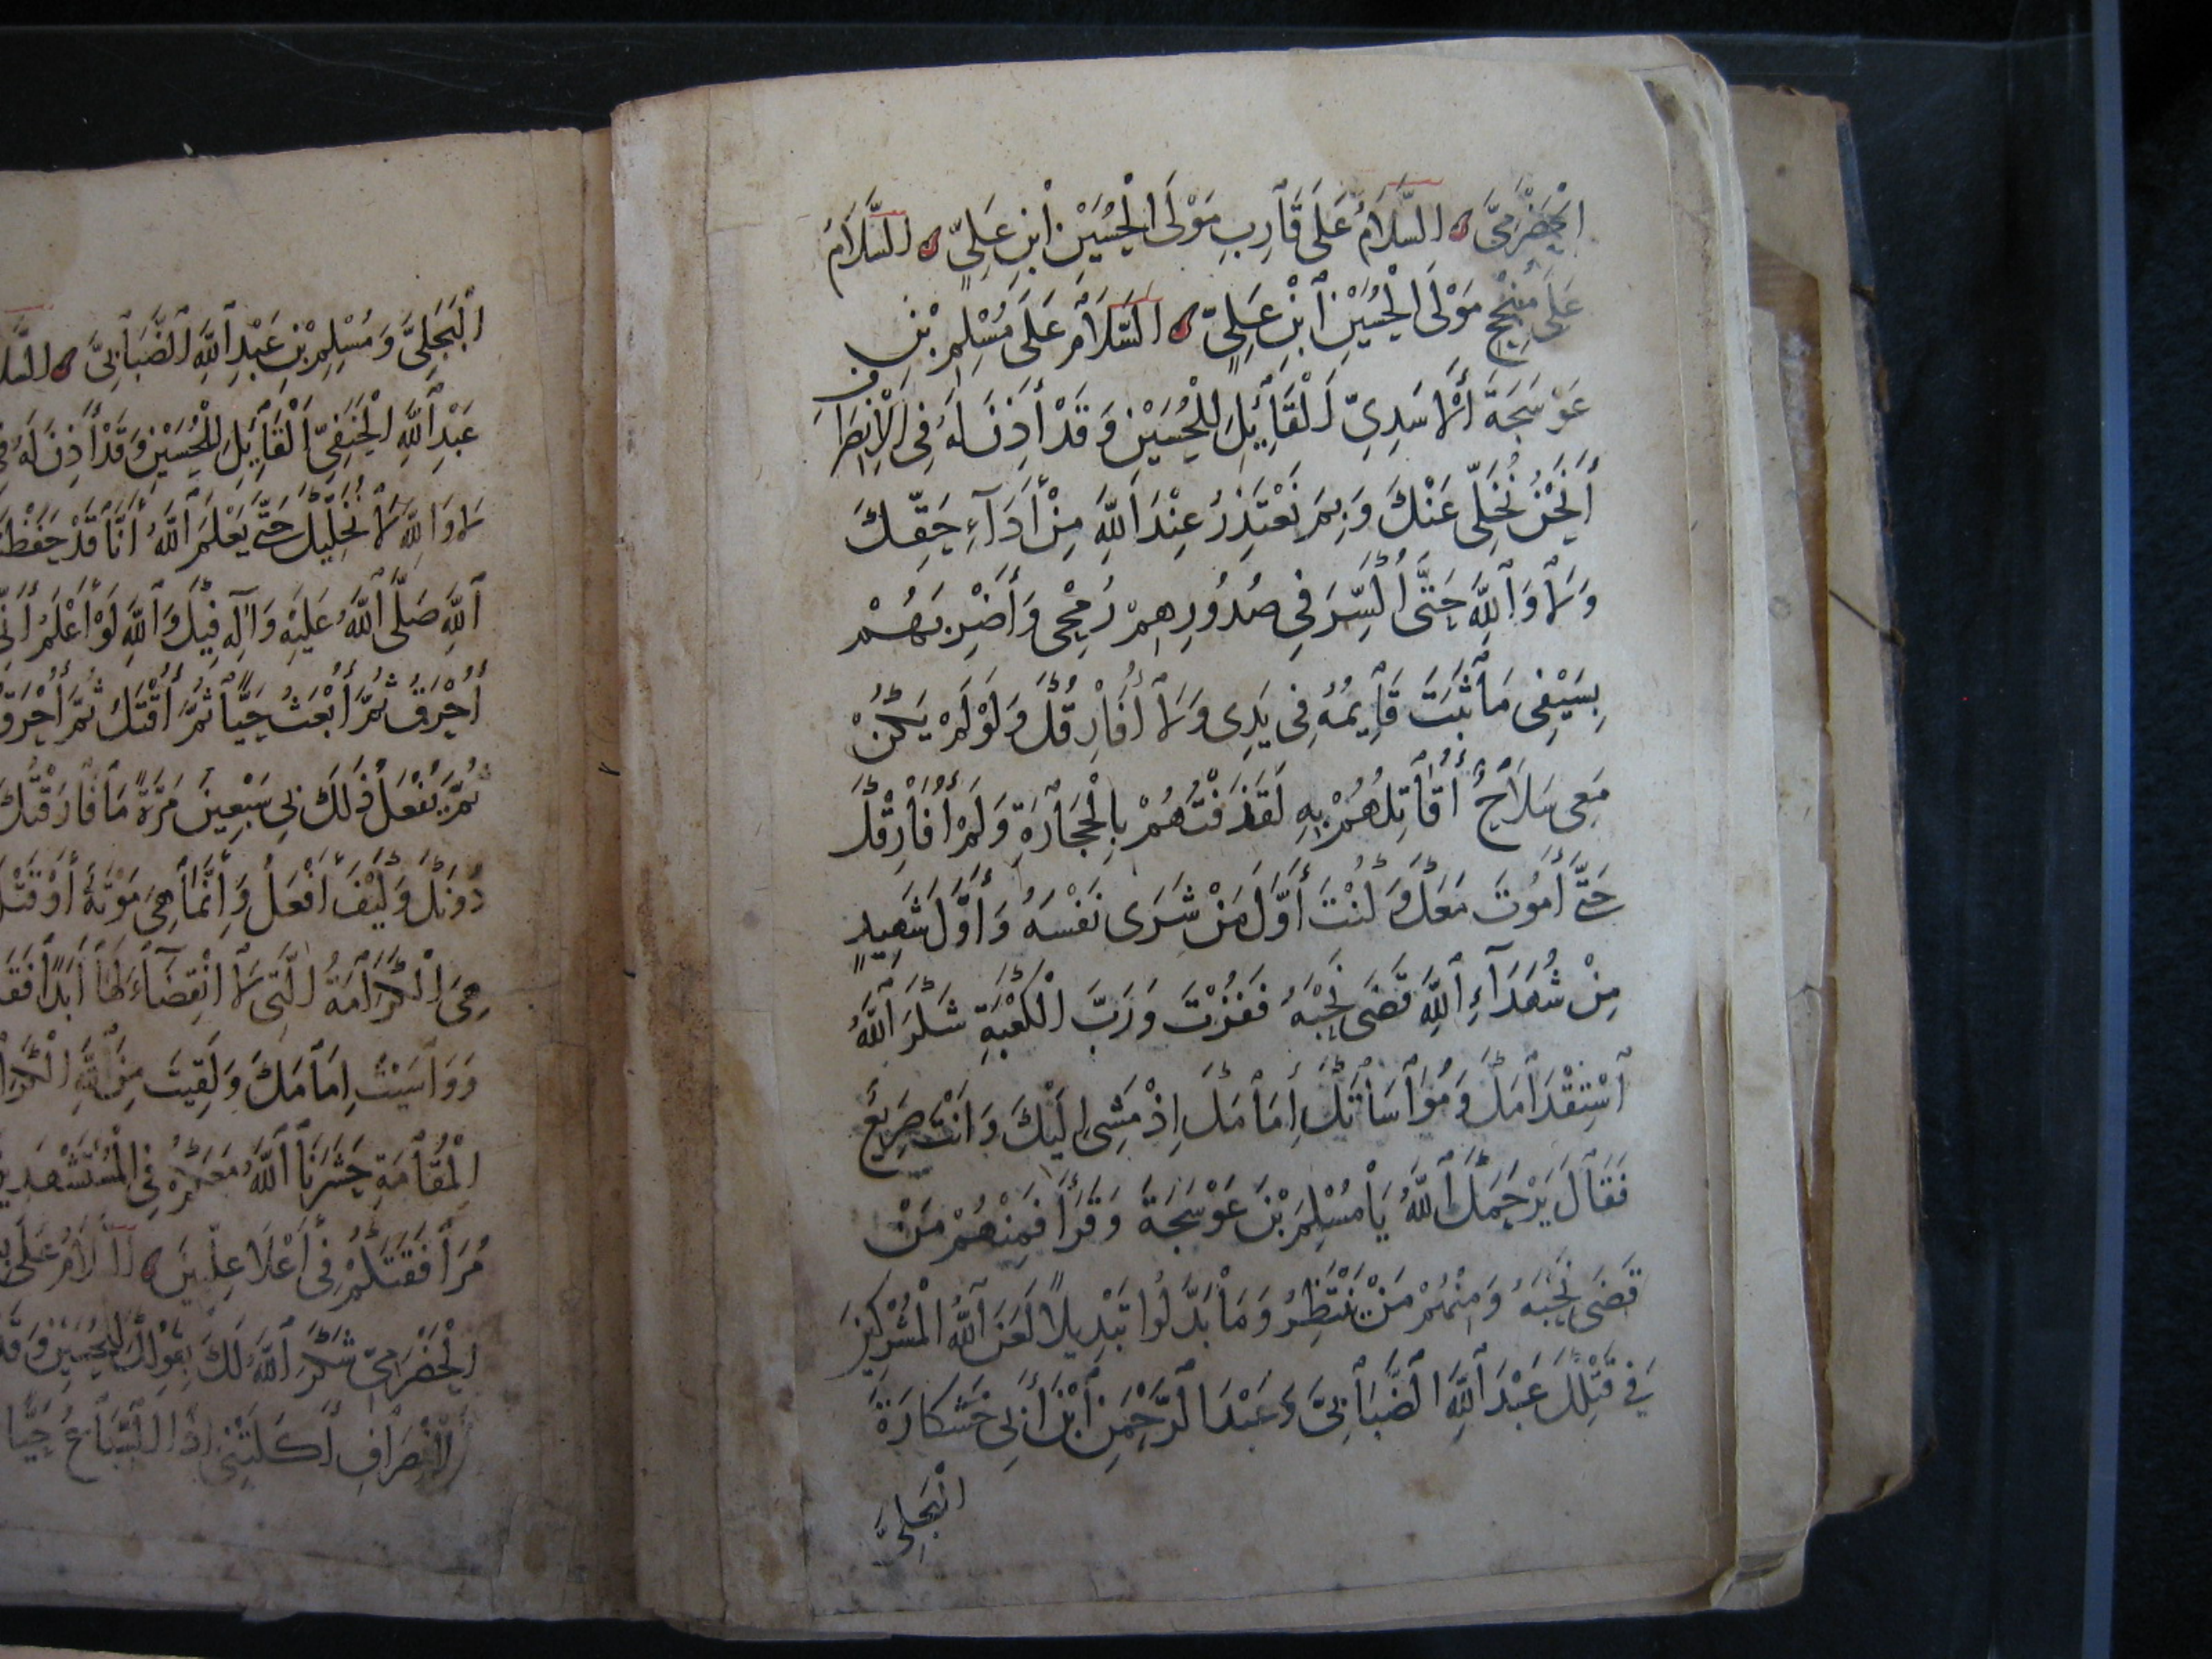 الْحَضْرَمِيِّ السَّلَامُ عَلَى قَارِبٍ مَوْلَى الْحُسَيْنِ ابْنِ عَلِيٍّ السَّلَامُ
عَلَى مُنْجِحٍ مَوْلَى الْحُسَيْنِ ابْنِ عَلِيٍّ السَّلَامُ عَلَى مُسْلِمِ بْنِ
عَوْسَجَةَ الْأَسَدِيِّ الْقَائِلِ لِلْحُسَيْنِ وَقَدْ أَذِنَ لَهُ فِي الْاِنْصِرَافِ
أَنَحْنُ نُخَلِّي عَنْكَ وَبِمَ نَعْتَذِرُ عِنْدَ اللَّهِ مِنْ أَدَاءِ حَقِّكَ
وَلَا وَاللَّهِ حَتَّى أُكَسِّرَ فِي صُدُورِهِمْ رُمْحِي وَأَضْرِبَهُمْ
بِسَيْفِي مَا ثَبَتَ قَايِمُهُ فِي يَدِي وَلَا أُفَارِقُكَ وَلَوْ لَمْ يَكُنْ
مَعِي سَلَاحٌ أُقَاتِلُهُمْ بِهِ لَقَذَفْتُهُمْ بِالْحِجَارَةِ وَلَمْ أُفَارِقْكَ
حَتَّى أَمُوتَ مَعَكَ وَكُنْتَ أَوَّلَ مَنْ شَرَى نَفْسَهُ وَأَوَّلَ شَهِيدٍ
مِنْ شُهَدَاءِ اللَّهِ قَضَى نَحْبَهُ فَفُزْتَ وَرَبِّ الْكَعْبَةِ شَكَرَ اللَّهُ
اسْتِقْدَامَكَ وَمُوَاسَاتَكَ إِمَامَكَ إِذْ مَشَى إِلَيْكَ وَأَنْتَ صَرِيعٌ
فَقَالَ يَرْحَمُكَ اللَّهُ يَا مُسْلِمَ بْنَ عَوْسَجَةَ وَقَرَأَ فَمِنْهُمْ مَنْ
قَضَى نَحْبَهُ وَمِنْهُمْ مَنْ يَنْتَظِرُ وَمَا بَدَّلُوا تَبْدِيلًا لَعَنَ اللَّهُ الْمُشْرِكِينَ
فِي قَتْلِكَ عَبْدَ اللَّهِ الضَّبَابِيَّ وَعَبْدَ الرَّحْمَنِ ابْنَ أَبِي خَشْكَارَةَ
الْبَجَلِيَّ
الْبَجَلِيَّ وَمُسْلِمَ بْنَ عَبْدِ اللَّهِ الضَّبَابِيَّ السَّلَا
عَبْدِ اللَّهِ الْحَنَفِيِّ الْقَائِلِ لِلْحُسَيْنِ وَقَدْ أَذِنَ لَهُ فِي
لَا وَاللَّهِ لَا نُخَلِّيكَ حَتَّى يَعْلَمَ اللَّهُ أَنَّا قَدْ حَفَظْنَا
اللَّهِ صَلَّى اللَّهُ عَلَيْهِ وَآلِهِ فِيكَ وَاللَّهِ لَوْ أَعْلَمُ أَنِّي
أُحْرَقُ ثُمَّ أُبْعَثُ حَيًّا ثُمَّ أُقْتَلُ ثُمَّ أُحْرَقُ
ثُمَّ يُفْعَلُ ذَلِكَ بِي سَبْعِينَ مَرَّةً مَا فَارَقْتُكَ
دُونَكَ وَكَيْفَ أَفْعَلُ وَإِنَّمَا هِيَ مَوْتَةٌ أَوْ قَتْلَ
هِيَ الْكَرَامَةُ الَّتِي لَا انْقِضَاءَ لَهَا أَبَدًا فَقَ
وَوَاسَيْتَ إِمَامَكَ وَلَقِيتَ مِنَ اللَّهِ الْكَرَا
الْمُقَامَةِ حَشَرَنَا اللَّهُ مَعَكُمْ فِي الْمُسْتَشْهَدِينَ
مُرَافَقَتَكُمْ فِي أَعْلَا عِلِّيِّينَ السَّلَامُ عَلَى
الْحَضْرَمِيِّ شَكَرَ اللَّهُ لَكَ بِقَوْلِكَ لِلْحُسَيْنِ وَقَ
الْاِنْصِرَافِ أَكَلَتْنِي إِذًا السِّبَاعُ حَيًّا